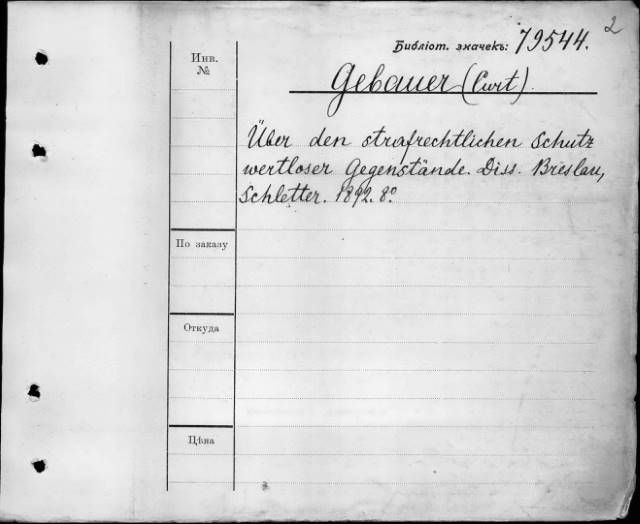 2
Библіот. значекъ: 79544.
Инв.
№
Gebauer (Curt).
Über den strafrechtlichen Schutz
wertloser Gegenstände. Diss. Breslau,
Schletter. 1892. 8º.
По заказу
Откуда
Цѣна